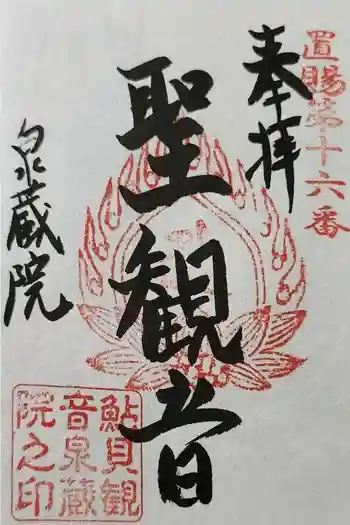 置賜第十六番
奉拝
聖観音
泉蔵院
鮎貝観
音泉蔵
院之印